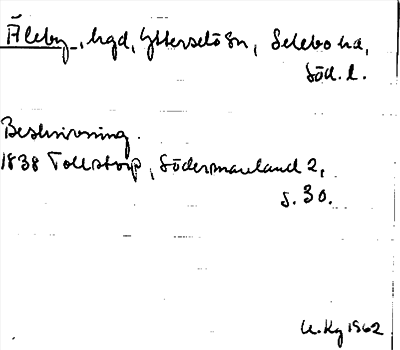 Åleby, hgd, Ytterselö sn, Selebo hd,
Söd. l.
Beskrivning.
1838 Tollstorp, Södermanland 2,
s. 30.
U. Kg 1962